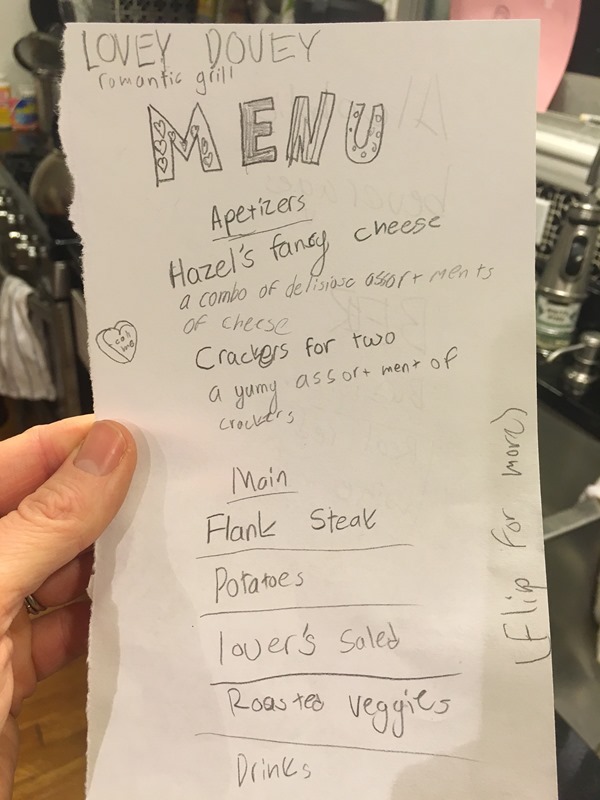 LOVEY DOVEY
romantic grill
MENU
Apetizers
Hazel's fancy cheese
a combo of delisiouse assortments
of cheese
Crackers for two
a yumy assortment of
crackers
Main
Flank Steak
Potatoes
lover's Saled
Roasted veggies
Drinks
(Flip for more)